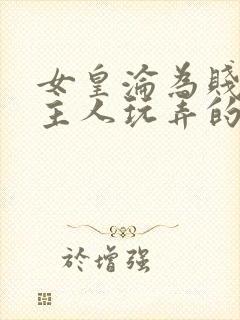 女皇淪為賤
主人玩弄的
於增强